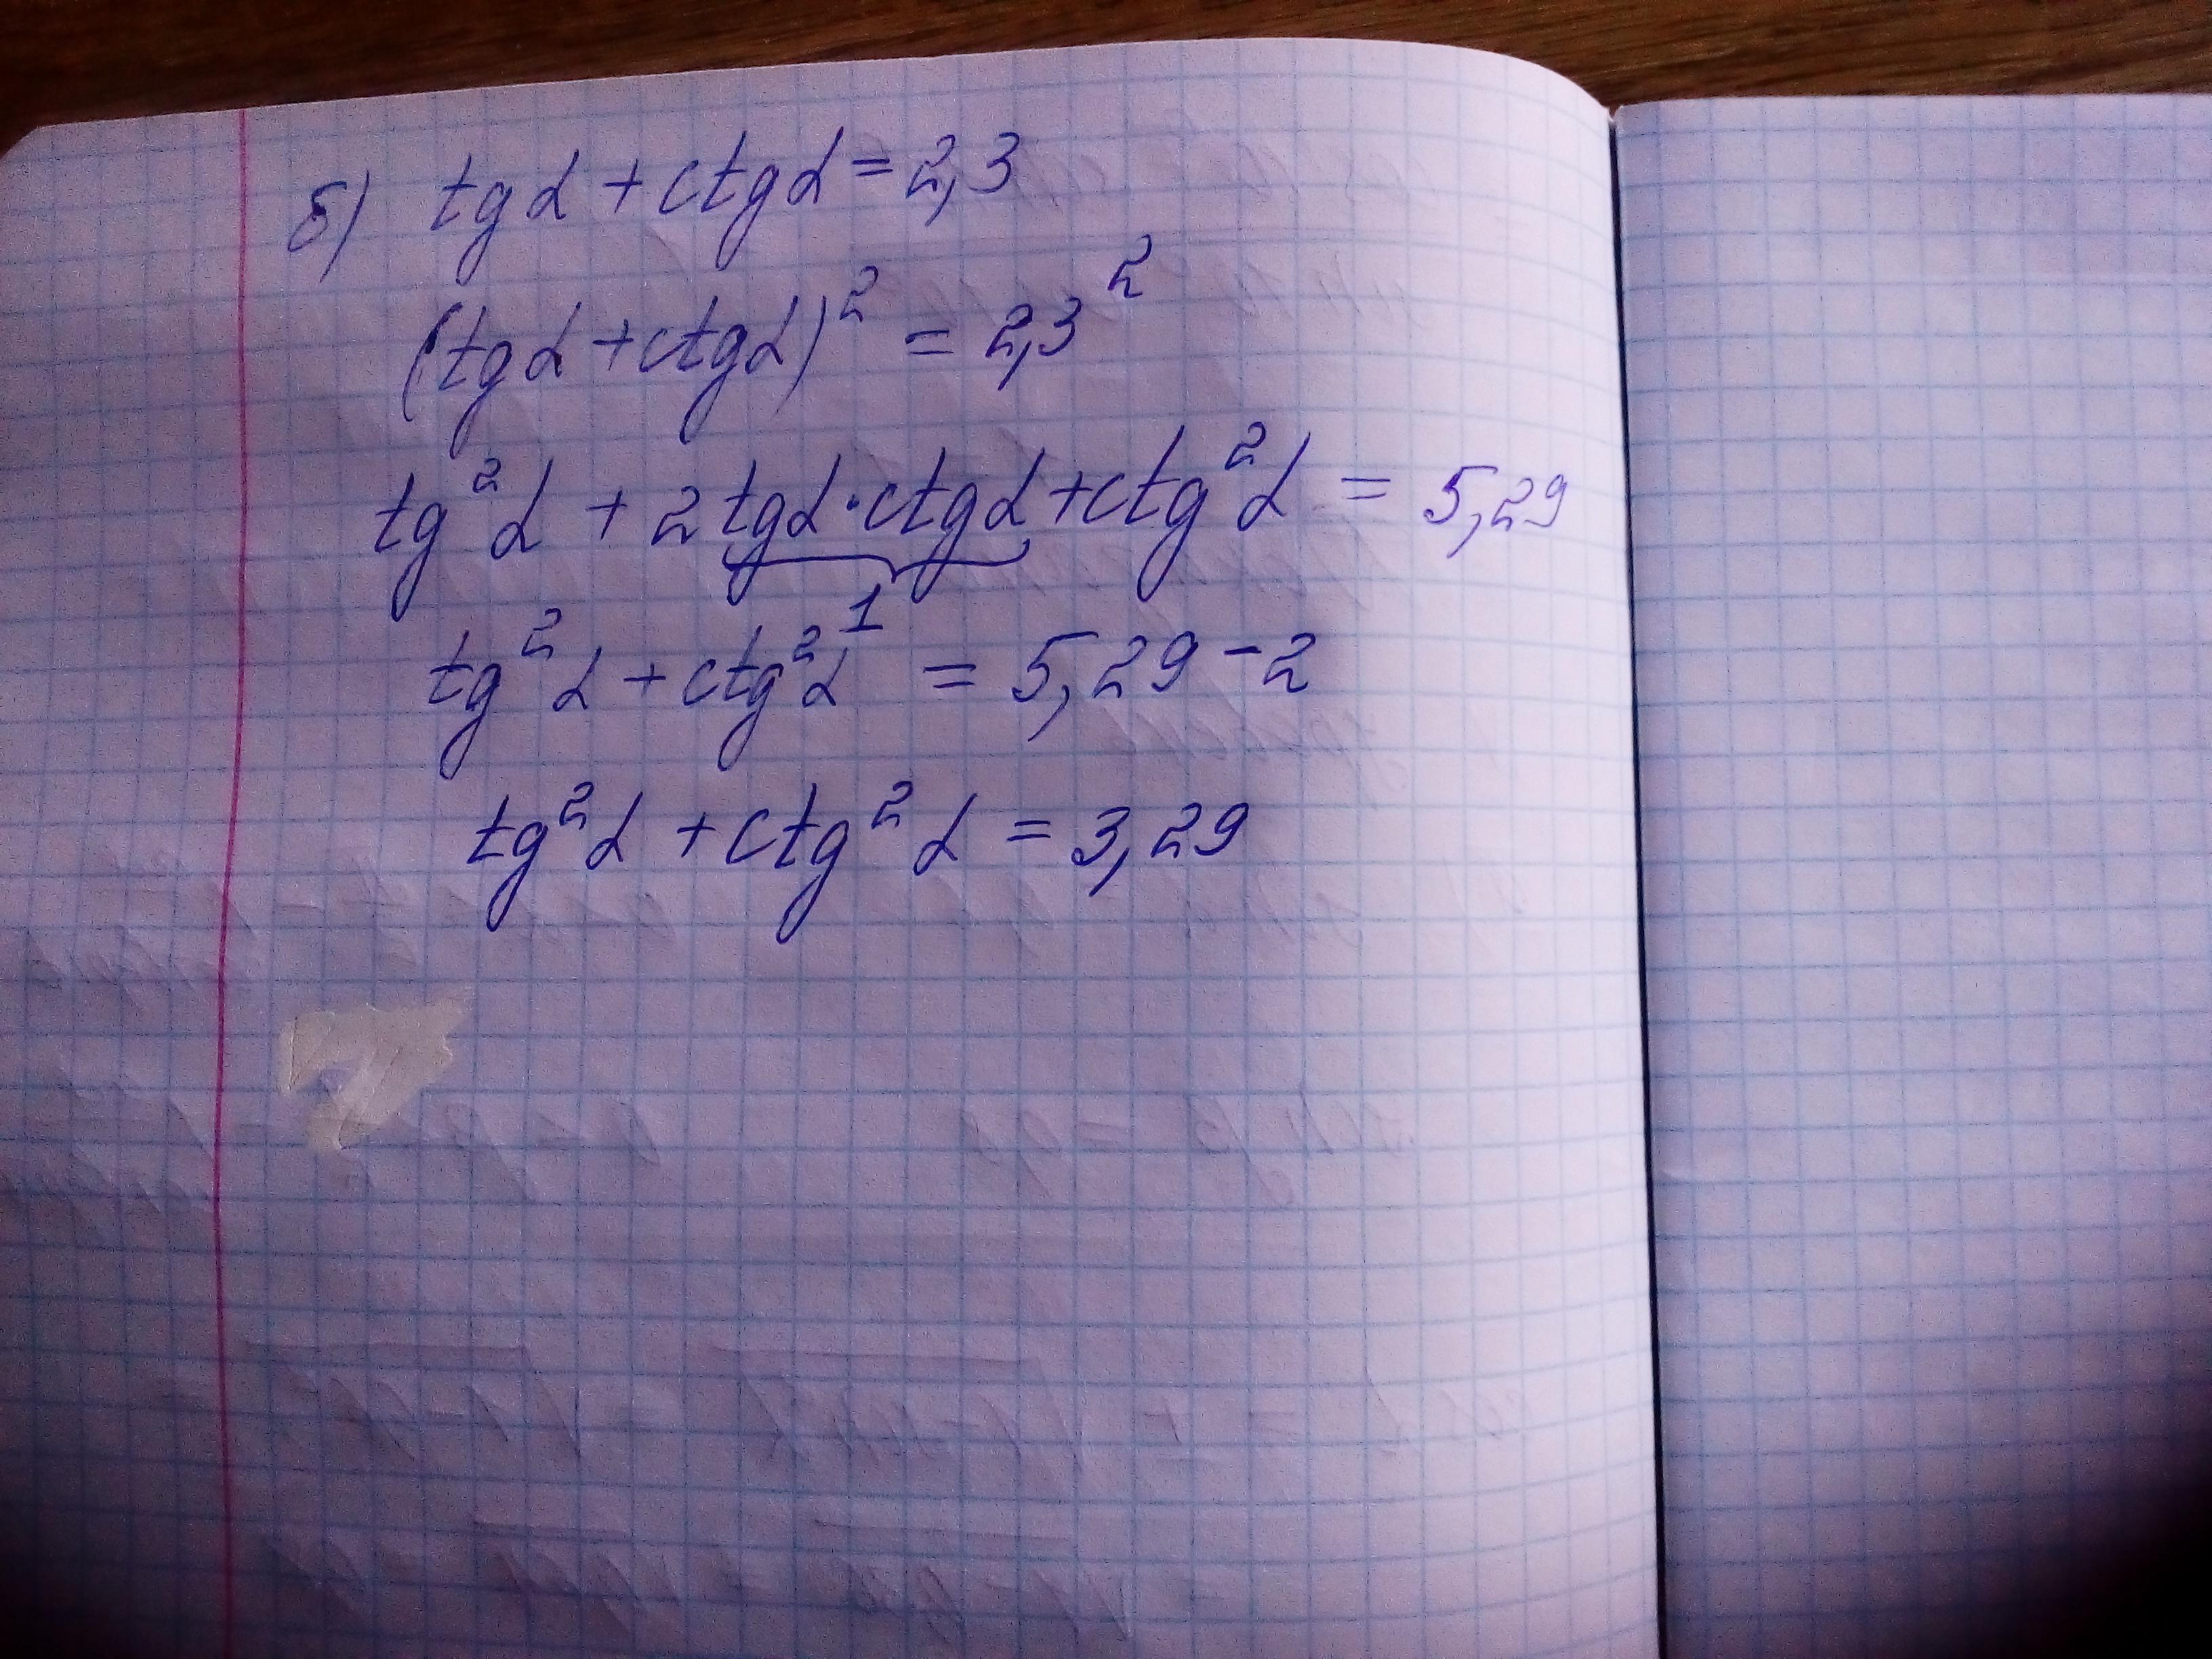 б) tgα + ctgα = 2,3
(tgα + ctgα)² = 2,3²
tg²α + 2tgα·ctgα + ctg²α = 5,29
1
tg²α + ctg²α = 5,29 - 2
tg²α + ctg²α = 3,29